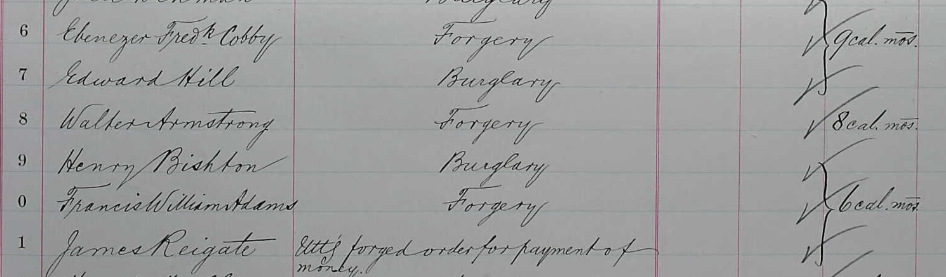 6 Ebenezer Fredk. Cobby Forgery 9 cal. mos.
7 Edward Hill Burglary
8 Walter Armstrong Forgery 8 cal. mos.
9 Henry Bishton Burglary
0 Francis William Adams Forgery 6 cal. mos.
1 James Reigate Utt'g forged order for payment of
money.